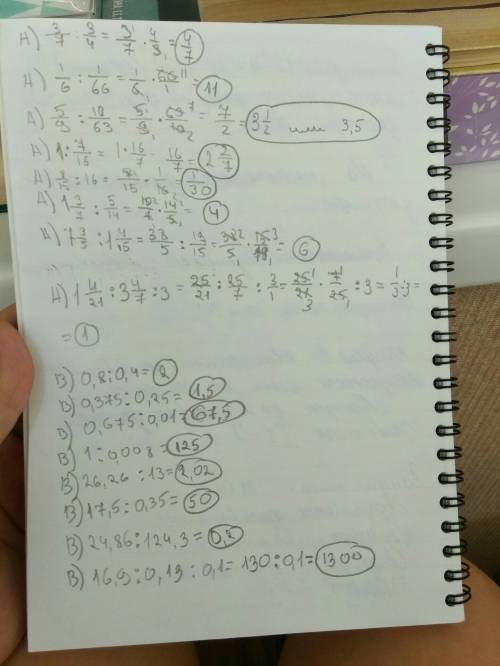 А) 3/7 : 3/4 = 3/7 · 4/3 = 4/7
А) 1/6 : 1/66 = 1/6 · 66/1 = 11
А) 5/9 : 10/63 = 5/9 · 63/10 = 7/2 = 3 1/2 или 3,5
А) 1 : 7/16 = 1 · 16/7 = 16/7 = 2 2/7
А) 8/15 : 16 = 8/15 · 1/16 = 1/30
А) 1 3/7 : 5/14 = 10/7 · 14/5 = 4
А) 7 3/5 : 1 4/15 = 38/5 : 19/15 = 38/5 · 15/19 = 6
А) 1 4/21 : 3 4/7 : 3 = 25/21 : 25/7 : 3/1 = 25/21 · 7/25 : 3 = 1/3 : 3 =
= 1
В) 0,8 : 0,4 = 2
В) 0,375 : 0,25 = 1,5
В) 0,675 : 0,01 = 67,5
В) 1 : 0,008 = 125
В) 26,26 : 13 = 2,02
В) 17,5 : 0,35 = 50
В) 24,86 : 124,3 = 0,2
В) 16,9 : 0,13 : 0,1 = 130 : 0,1 = 1300